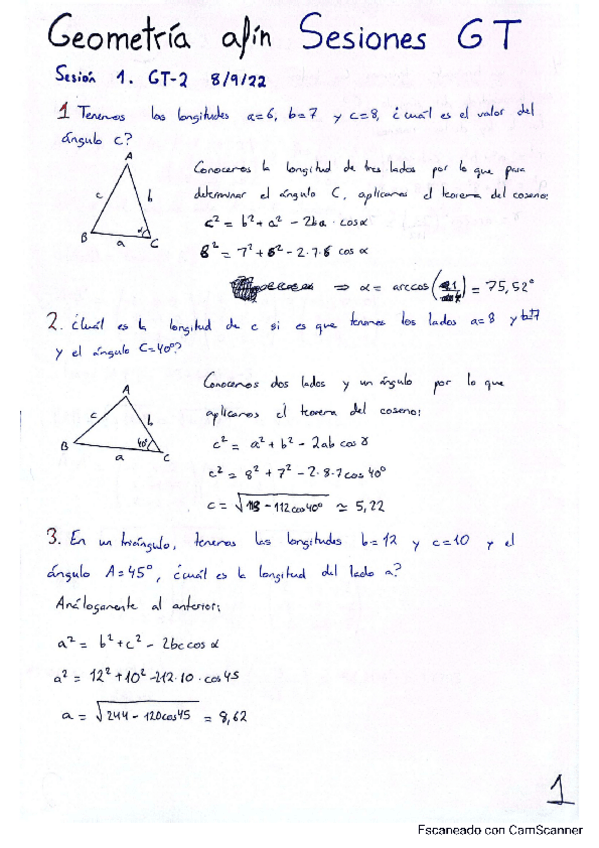 Geometría afín Sesiones GT
Sesión 1. GT-2 8/9/22
1 Tenemos las longitudes a=6, b=7 y c=8, ¿cuál es el valor del
ángulo c?
A
Conocemos la longitud de tres lados por lo que para
determinar el ángulo C, aplicamos el teorema del coseno:
c b
c² = b² + a² - 2ba · cos α
B a C
8² = 7² + 6² - 2·7·6 cos α
⇒ α = arccos( ) = 75,52°
2. ¿Cuál es la longitud de c si es que tenemos los lados a=8 y b=7
y el ángulo C=40°?
Conocemos dos lados y un ángulo por lo que
A
aplicamos el teorema del coseno:
c b
B 40°
c² = a² + b² - 2ab cos γ
a C
c² = 8² + 7² - 2·8·7 cos 40°
c = √113 - 112 cos 40° ≃ 5,22
3. En un triángulo, tenemos las longitudes b=12 y c=10 y el
ángulo A=45°, ¿cuál es la longitud del lado a?
Análogamente al anterior:
a² = b² + c² - 2bc cos α
a² = 12² + 10² - 2·12·10 · cos 45
a = √244 - 120 cos 45 = 8,62
1
Escaneado con CamScanner